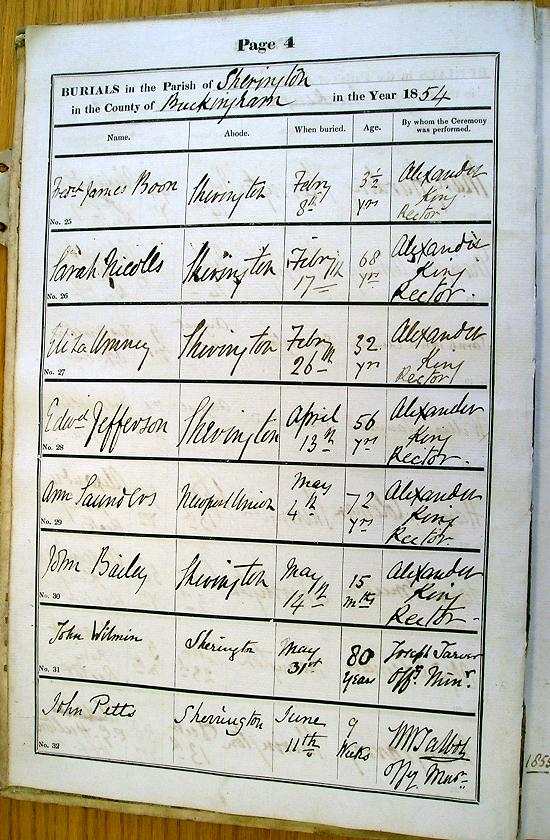 Page 4
BURIALS in the Parish of Sherington
in the County of Buckingham in the Year 1854
Name. Abode. When buried. Age. By whom the Ceremony was performed.
Fredk James Boon Sherington Febry 8th 3½ yrs Alexander King Rector
No. 25
Sarah Nicolls Sherington Febry 17th 68 yrs Alexander King Rector.
No. 26
Eliza Umney Sherington Febry 26th 32 yrs Alexander King Rector
No. 27
Edwd Jefferson Sherington April 13th 56 yrs Alexander King Rector.
No. 28
Ann Saunders Newport Union May 4th 72 yrs Alexander King Rector.
No. 29
John Bailey Sherington May 14th 15 mths Alexander King Rector.
No. 30
John Wilmin Sherington May 31st 80 Years Joseph Tarver Offg Minr.
No. 31
John Petts Sherrington June 11th 9 Weeks Talbot Offg Minr.
No. 32
1855